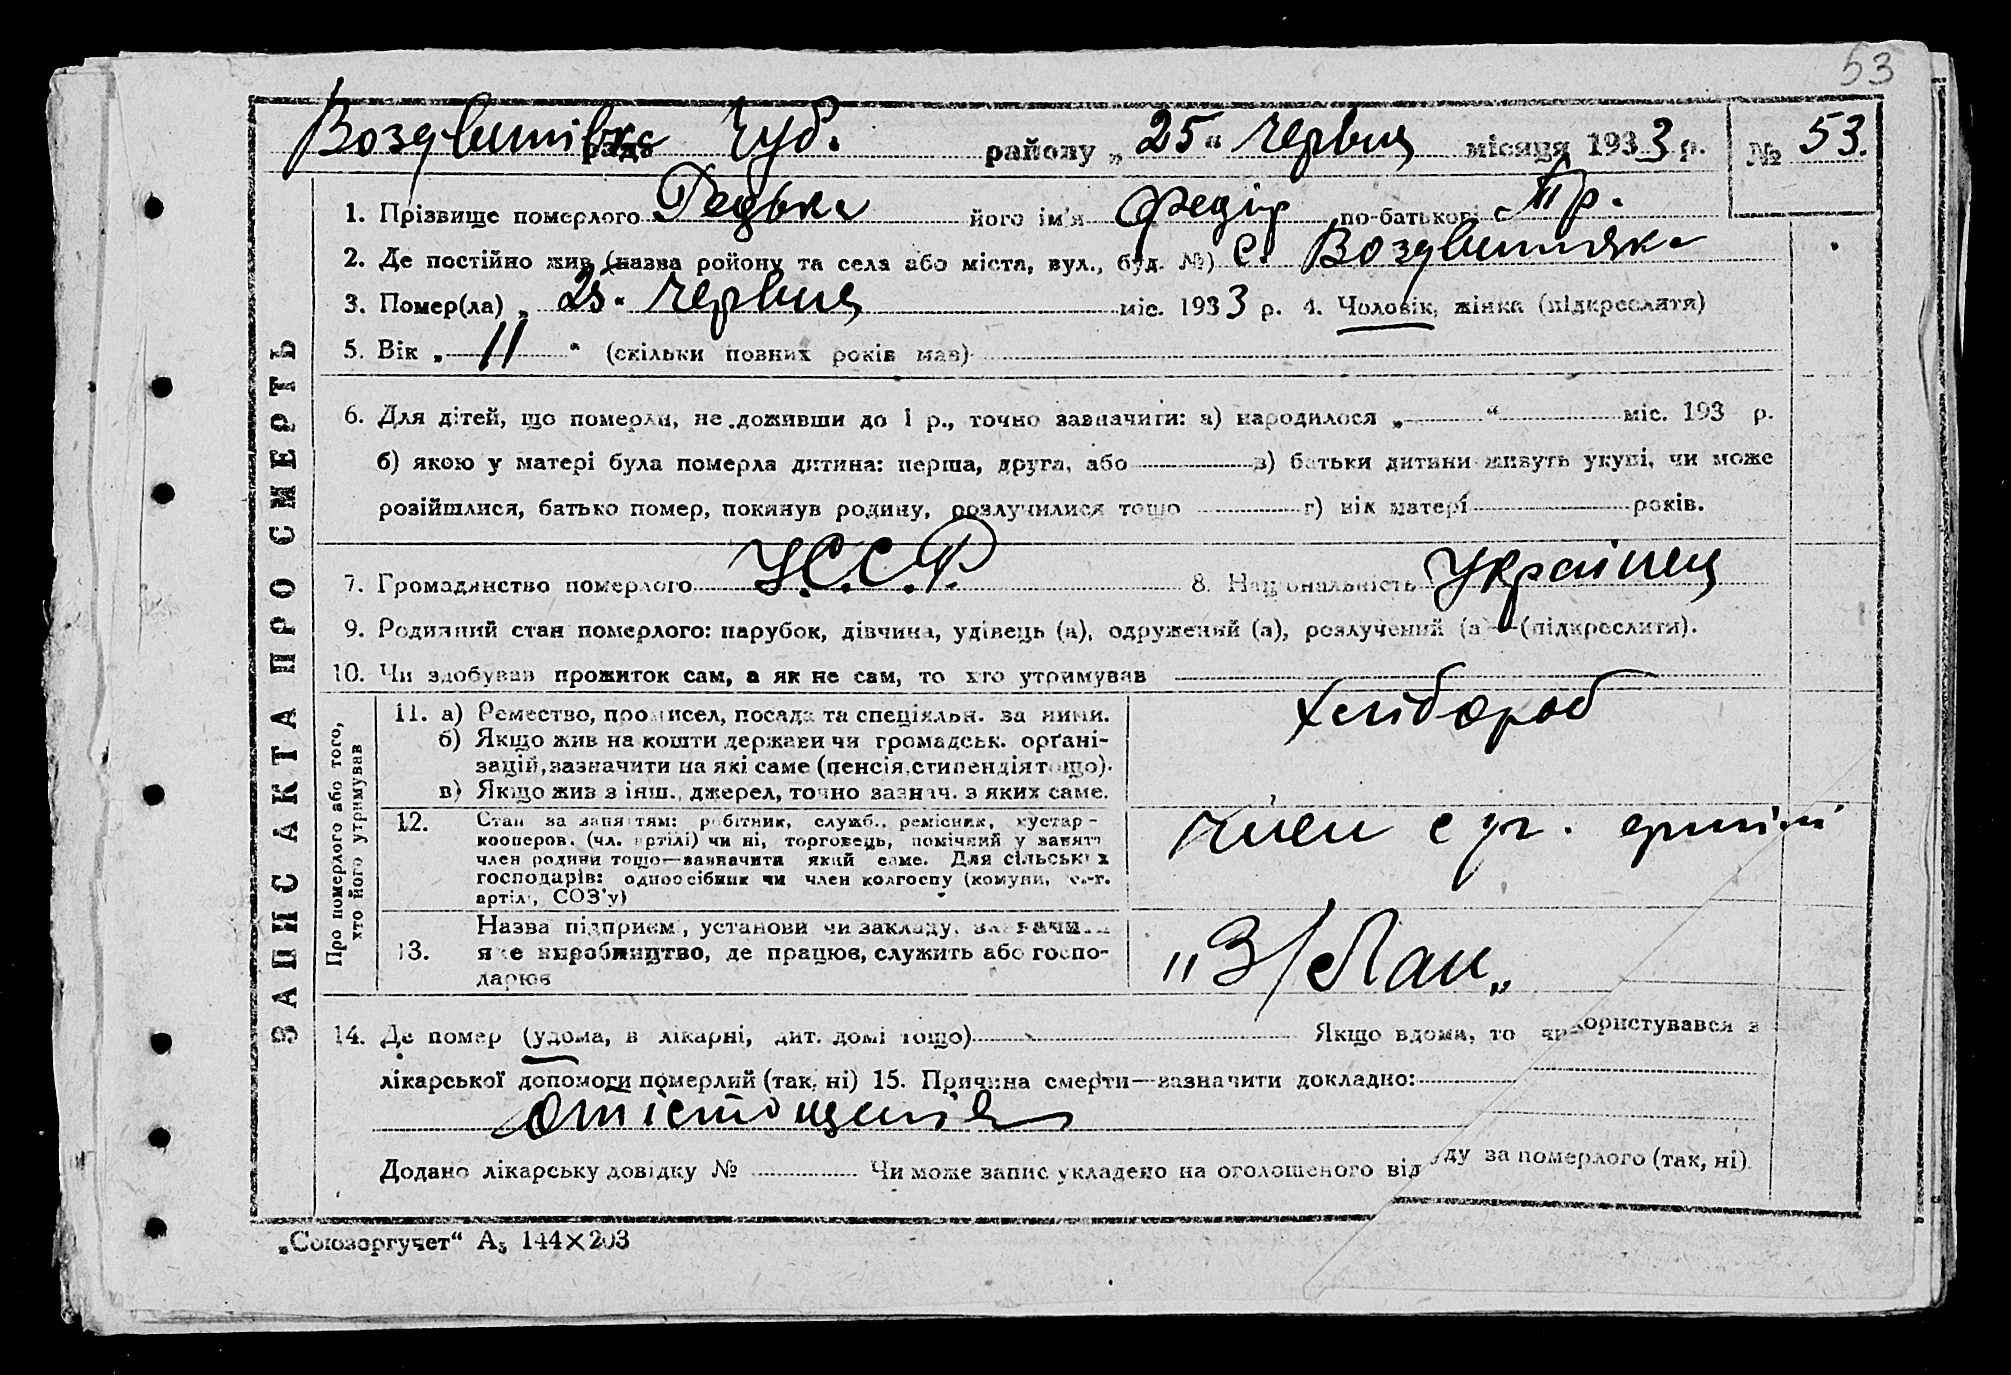 53
Воздвишівка рада Чуб. району „25“ червня місяця 1933 р. № 53.
1. Прізвище померлого Редька його ім'я Федір по-батькові Пр.
2. Де постійно жив (назва ройону та села або міста, вул., буд. №) с. Воздвишівка
3. Помер(ла) „25“ червня міс. 1933 р. 4. Чоловік, жінка (підкреслити)
5. Вік „11“ (скільки повних років мав)
6. Для дітей, що померли, не доживши до 1 р., точно зазначити: а) народилося „ “ міс. 193 р.
б) якою у матері була померла дитина: перша, друга, або в) батьки дитини живуть укупі, чи може
розійшлися, батько помер, покинув родину, розлучилися тощо г) вік матері років.
7. Громадянство померлого У.С.С.Р. 8. Національність Українец
9. Родинний стан померлого: парубок, дівчина, удівець (а), одружений (а), розлучений (а) — (підкреслити).
10. Чи здобував прожиток сам, а як не сам, то хто утримував
ЗАПИС АКТА ПРО СМЕРТЬ
Про померлого або того,
хто його утримував
11. а) Ремество, промисел, посада та спеціяльн. за ними.
б) Якщо жив на кошти держави чи громадськ. орґані-
зацій, зазначити на які саме (пенсія, стипендія тощо).
в) Якщо жив з інш. джерел, точно зазнач. з яких саме.
Хлібороб
12. Стан за заняттям: робітник, служб., ремісник, кустар-
кооперов. (чл. артілі) чи ні, торговець, помічний у занятт
член родини тощо—зазначити який саме. Для сільських
господарів: одноосібник чи член колгоспу (комуни, с.-г.
артілі, СОЗ'у)
член с гг. артілі
13. Назва підприєм., установи чи закладу, зазначи
яке виробництво, де працюв, служить або госпо-
дарюв
„З/Лан„
14. Де помер (удома, в лікарні, дит. домі тощо) Якщо вдома, то чи користувався з
лікарської допомоги померлий (так, ні) 15. Причина смерти—зазначити докладно:
отістощенія
Додано лікарську довідку № Чи може запис укладено на оголошеного від суду за померлого (так, ні).
„Союзоргучет“ А₅ 144×203